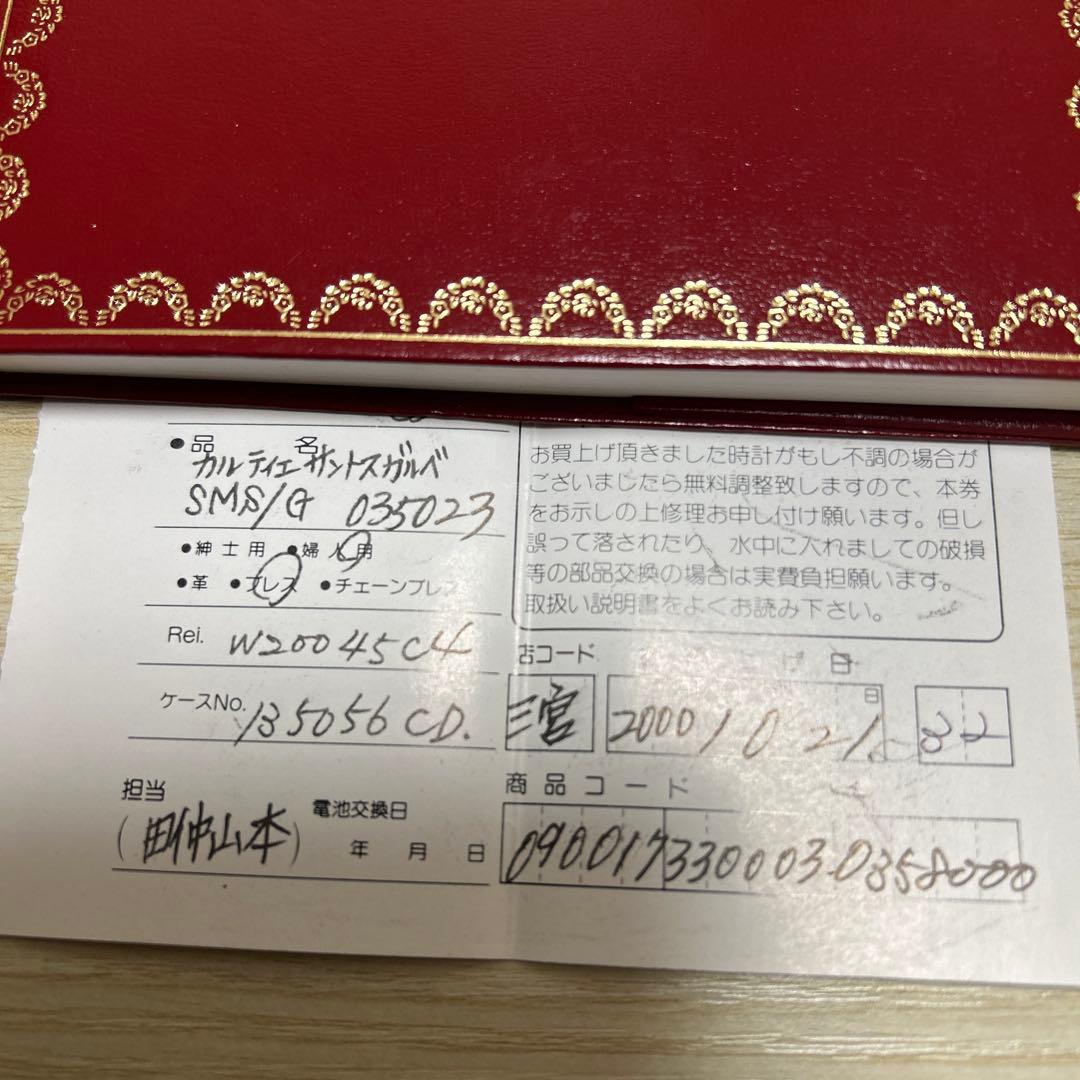 ●品　名
カルティエ サントスガルベ
SMS/G 035023
●紳士用 ●婦人用
●革 ●ブレス ●チェーンブレス
Rei. W20045C4
ケースNo. 135056 CD.
担当
(田仲山本)
電池交換日
年 月 日
お買上げ頂きました時計がもし不調の場合が
ございましたら無料調整致しますので、本券
をお示しの上修理お申し付け願います。但し
誤って落されたり、水中に入れましての破損
等の部品交換の場合は実費負担願います。
取扱い説明書をよくお読み下さい。
店コード
げ 日
三宮
2000 10 21 日
32
商品コード
090017330003.0358000